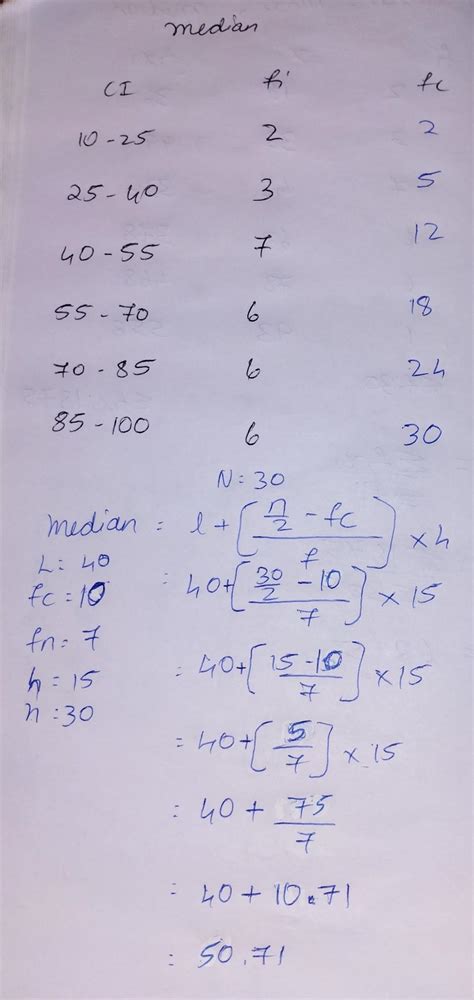 median
CI fi fc
10-25 2 2
25-40 3 5
40-55 7 12
55-70 6 18
70-85 6 24
85-100 6 30
N:30
median = l+[n/2 - fc / f] ×h
L: 40
= 40+[30/2 - 10 / 7] × 15
fc = 10
fn= 7
= 40+[15-10 / 7] ×15
h = 15
n :30
= 40+[5/7] × 15
: 40 + 75/7
: 40 + 10.71
: 50.71